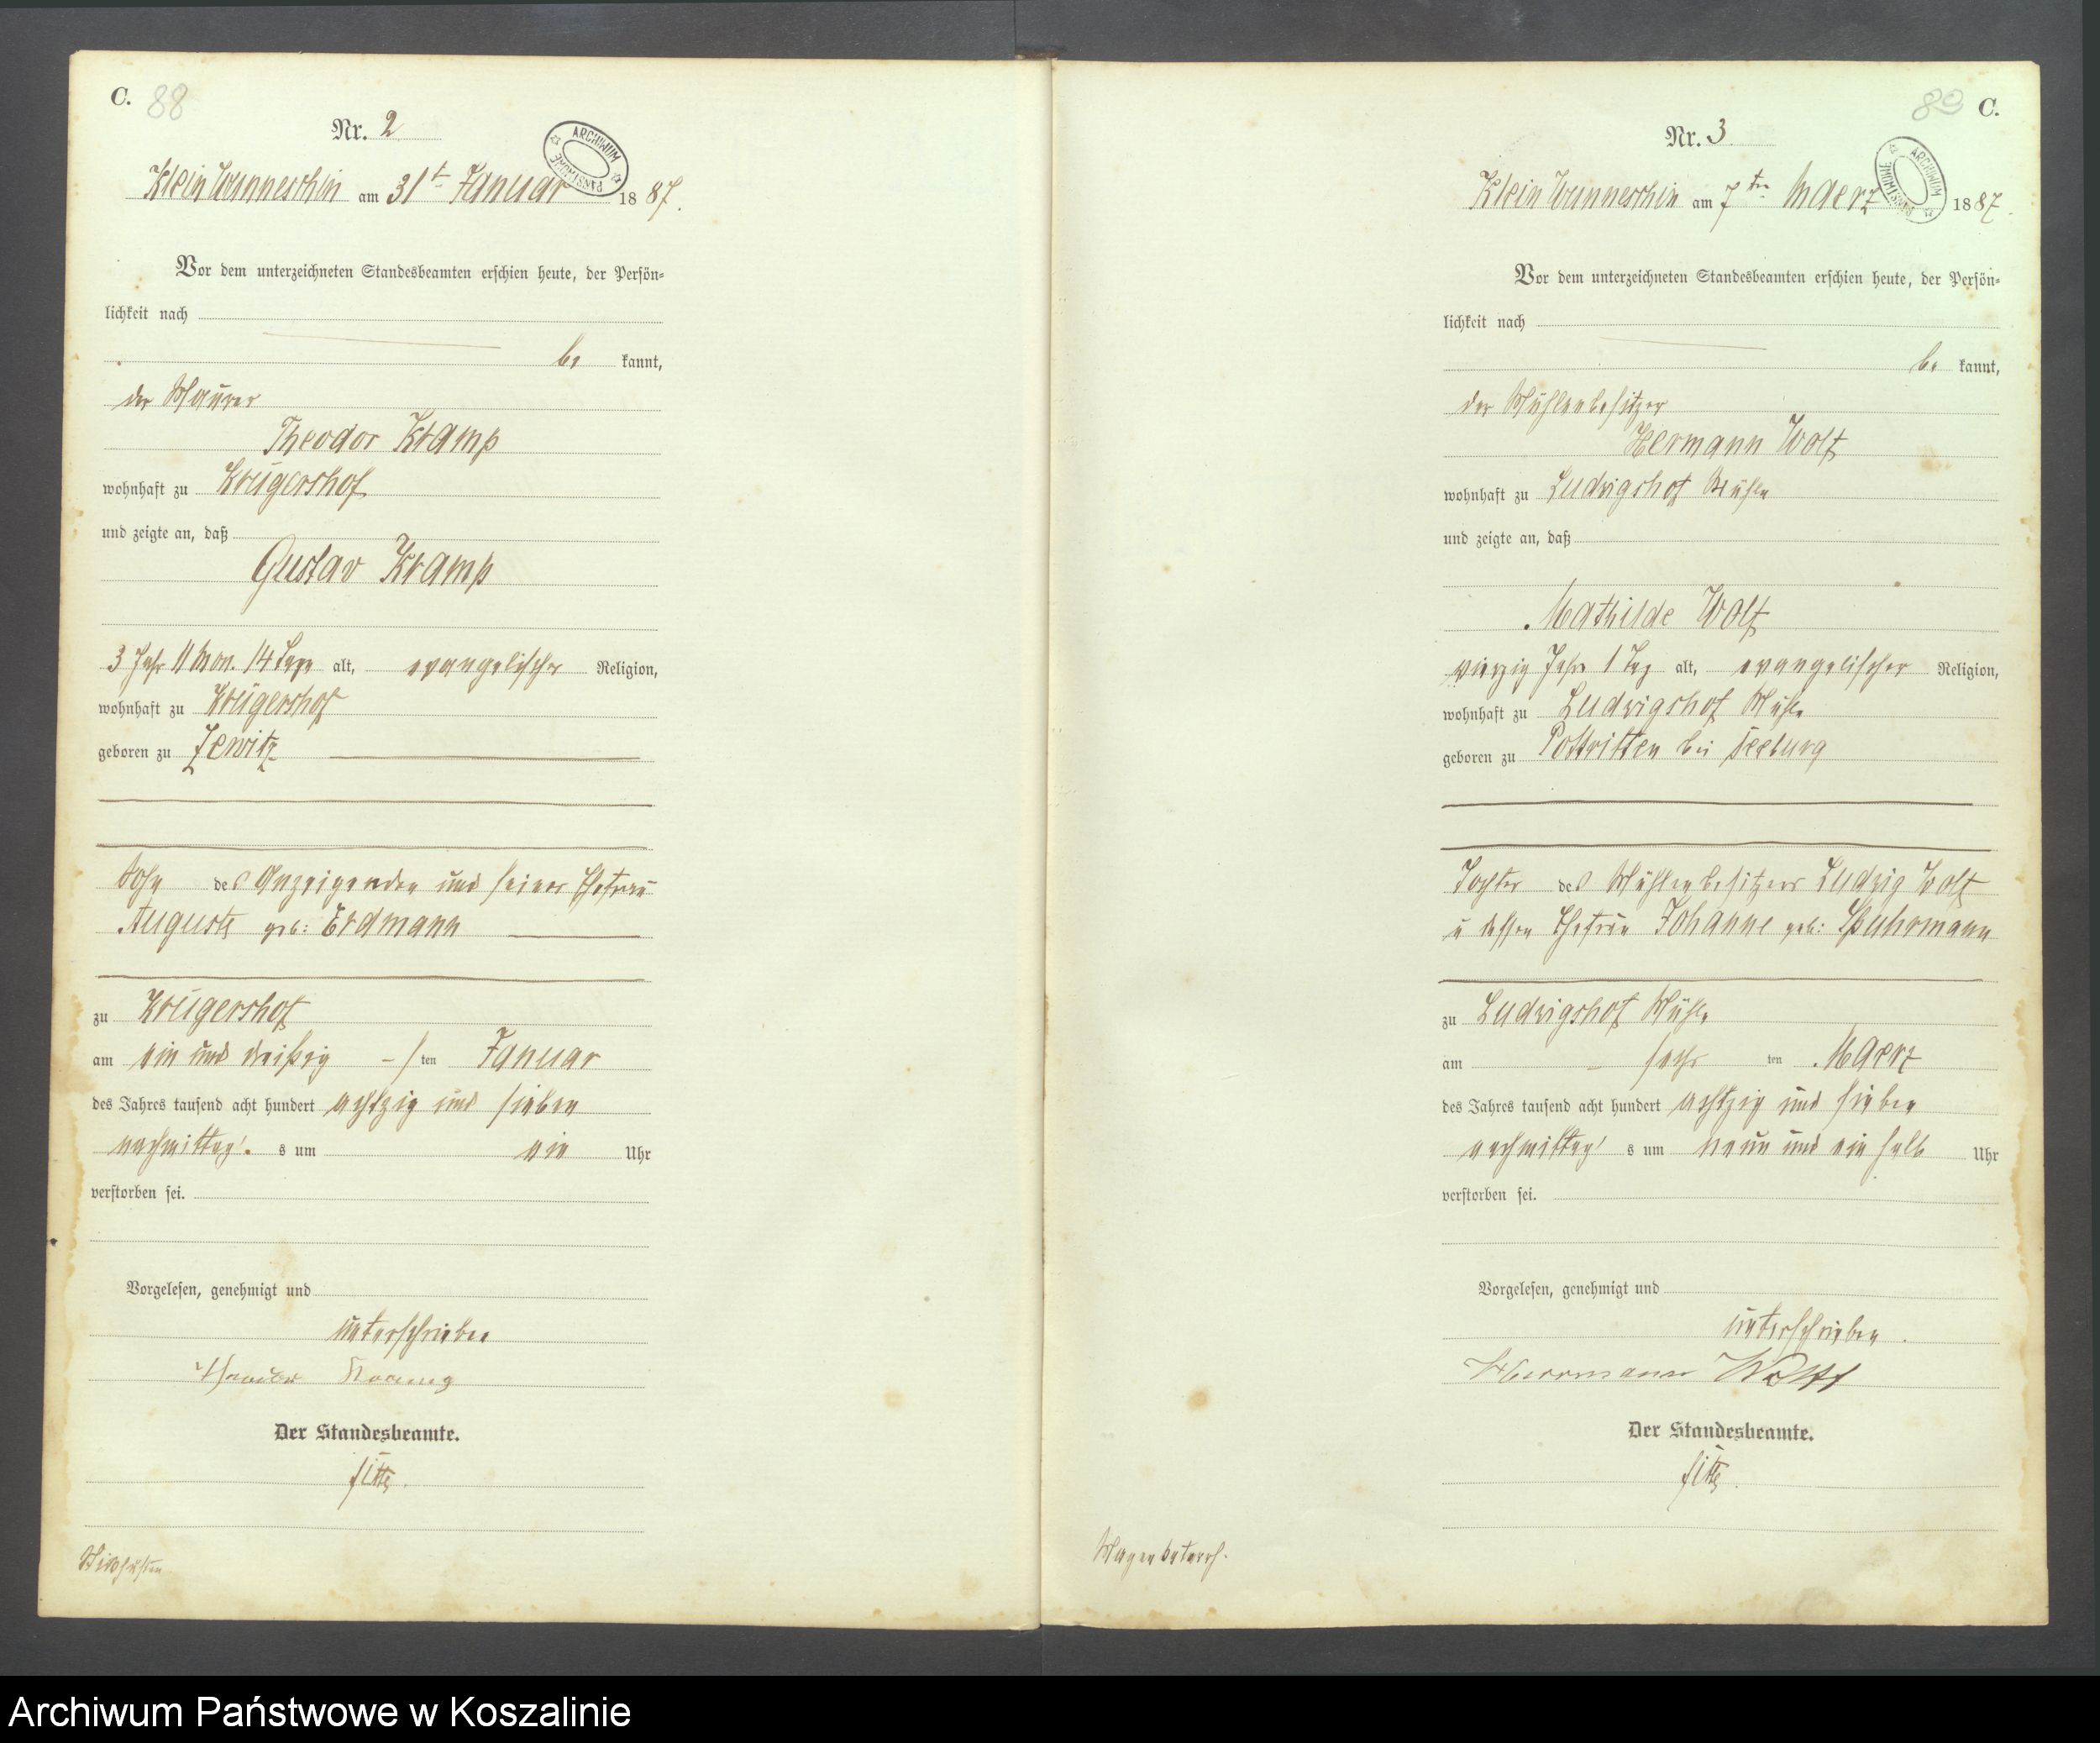 C. 88
Nr. 2
ARCHIWUM PAŃSTWOWE
Klein Wunneschin am 31t Januar 1887.
Vor dem unterzeichneten Standesbeamten erschien heute, der Persön-
lichkeit nach
be kannt,
der Maurer
Theodor Kramp
wohnhaft zu Krügershof
und zeigte an, daß
Gustav Kramp
3 Jahr 11 Mon. 14 Tage alt, evangelischer Religion,
wohnhaft zu Krügershof
geboren zu Zewitz
Sohn des Anzeigenden und seiner Ehefrau
Auguste geb: Erdmann
zu Krügershof
am ein und dreißig - ten Januar
des Jahres tausend acht hundert achtzig und sieben
nachmittag's um ein Uhr
verstorben sei.
Vorgelesen, genehmigt und
unterschrieben
Theodor Kramp
Der Standesbeamte.
83 C.
Nr. 3
ARCHIWUM PAŃSTWOWE
Klein Wunneschin am 7ten Maerz 1887.
Vor dem unterzeichneten Standesbeamten erschien heute, der Persön-
lichkeit nach
be kannt,
der Mühlenbesitzer
Hermann Wolf
wohnhaft zu Ludwigshof Mühle
und zeigte an, daß
Mathilde Wolf
vierzig Jahr 1 Tag alt, evangelischer Religion,
wohnhaft zu Ludwigshof Mühle
geboren zu bei Seeburg
Tochter des Mühlenbesitzers Ludwig Wolf
u dessen Ehefrau Johanne geb: Spuhrmann
zu Ludwigshof Mühle
am - sechs ten Maerz
des Jahres tausend acht hundert achtzig und sieben
nachmittag's um neun und ein halb Uhr
verstorben sei.
Vorgelesen, genehmigt und
unterschrieben.
Herrmann Wolff
Der Standesbeamte.
Magenkatarrh.
Archiwum Państwowe w Koszalinie